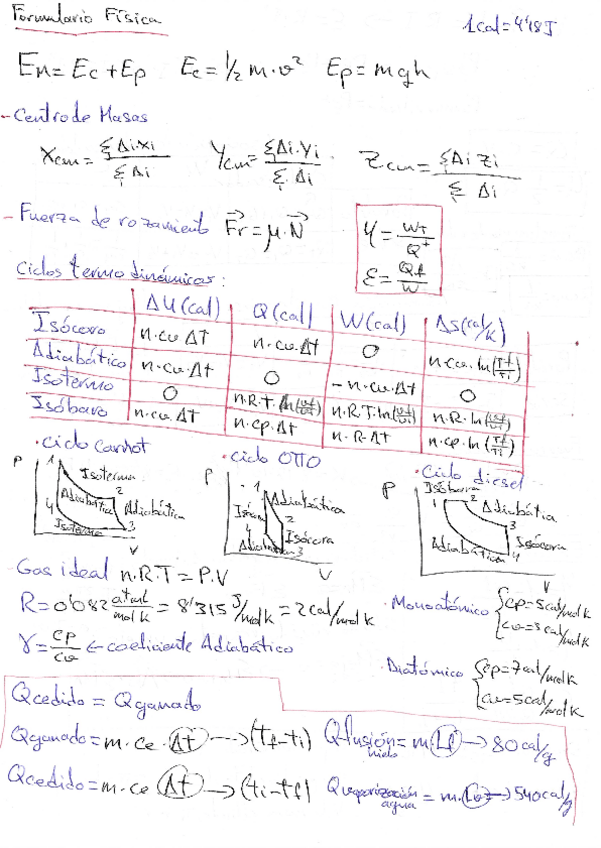 Formulario Física
1cal=4'18J
Em=Ec+Ep Ec=1/2 m·v² Ep=mgh
- Centro de Masas
Xcm= ΣΔi·xi / ΣΔi Ycm= ΣΔi·yi / ΣΔi Zcm= ΣΔi zi / ΣΔi
- Fuerza de rozamiento Fr=μ·N
η= WT / Q⁺
ε= Qf / W
Ciclos termodinámicos:
ΔU(cal) Q(cal) W(cal) ΔS(cal/k)
Isócoro n·cv·ΔT n·cv·Δt 0 n·cv·ln(Tf/Ti)
Adiabático n·cv·Δt 0 -n·cv·Δt 0
Isotermo 0 n·R·T·ln(Vf/Vi) n·R·T·ln(Vf/Vi) n·R·ln(Vf/Vi)
Isóbaro n·cv·Δt n·cp·Δt n·R·Δt n·cp·ln(Tf/Ti)
·Ciclo Carnot
P 1 Isoterma
Adiabática 2 Adiabática
4 Isoterma 3
V
·Ciclo OTTO
P 1 Adiabática
Isócora 2
4 Isócora
Adiabática 3
V
·Ciclo diesel
P Isóbara
1 2 Adiabática
3
Isócora
Adiabática 4
V
- Gas ideal n.R.T=P.V
R=0'082 atml/molk = 8'315 J/molk = 2cal/molk
γ= cp/cv ← coeficiente Adiabático
·Monoatómico cp=5cal/molk
cv=3cal/molk
·Diatómico cp=7cal/molk
cv=5cal/molk
Qcedido = Qganado
Qganado=m·ce·Δt → (tf-ti) Qfusión hielo=m·Lf → 80cal/g
Qcedido=m·ce Δt → (ti-tf) Qvaporización agua=m·Lv → 540cal/g